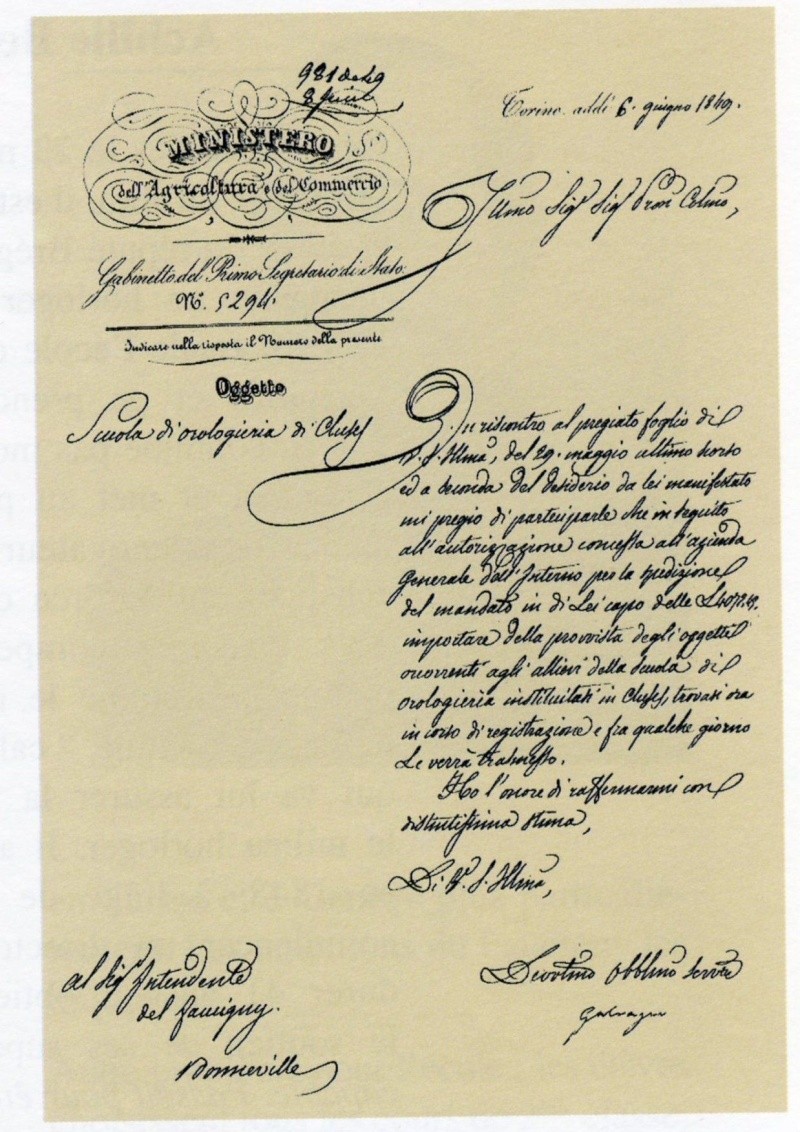 981 de 49
8 juin
MINISTERO
dell'Agricoltura e del Commercio
Gabinetto del Primo Segretario di Stato.
N. 5294.
Indicare nella risposta il Numero della presente
Oggetto
Scuola di orologieria di Cluses
Torino addì 6. giugno 1849.
Illmo Sigr Sigr Pron Colmo,
In riscontro al pregiato foglio di
V. S. Illma, del 29. maggio ultimo scorso
ed a seconda del desiderio da lei manifestato
mi pregio di parteciparle che in seguito
all'autorizzazione concessa all'azienda
Generale dell'Interno per la spedizione
del mandato in di Lei capo delle
importare della provvista degli oggetti
occorrenti agli allievi della scuola di
orologieria instituitasi in Cluses, trovasi ora
in corso di registrazione e fra qualche giorno
Le verrà trasmesso.
Ho l'onore di raffermarmi con
distintissima stima,
Di V. S. Illma,
Devotmo Obblmo Servre
Galvagno
Al Sigr Intendente
del Faucigny.
Bonneville